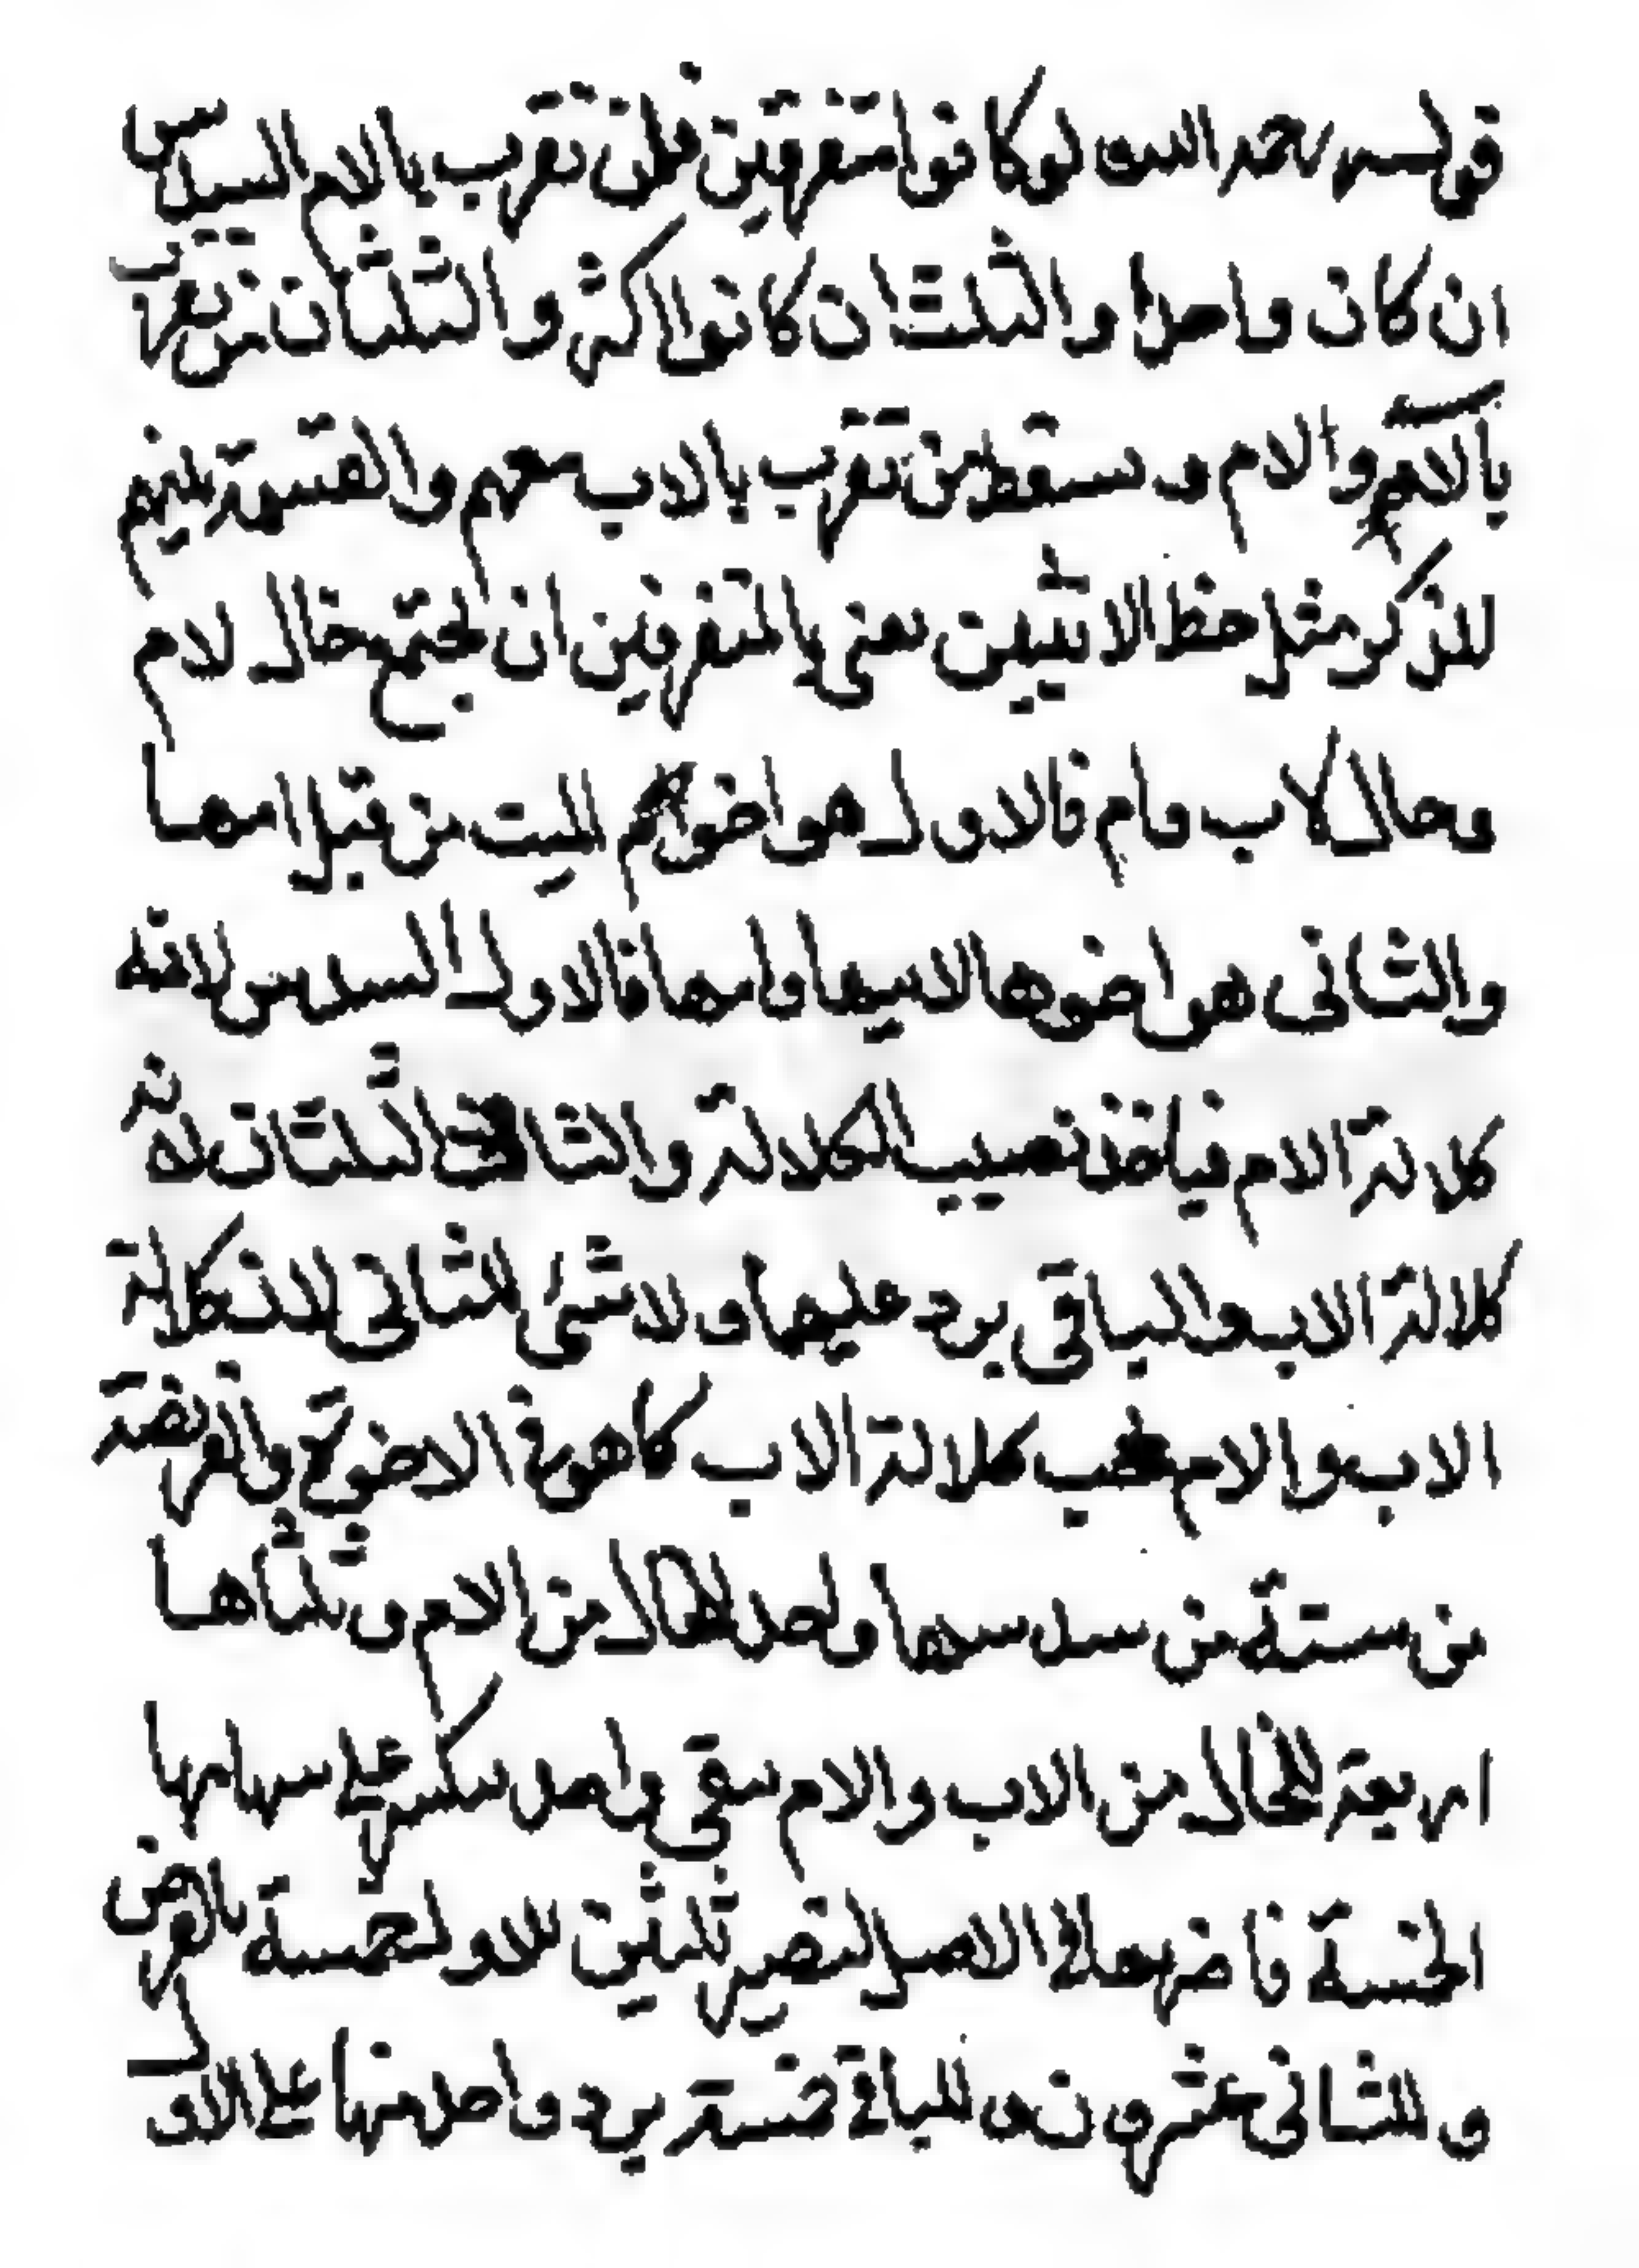 قوله رحمه الله لو كانوا متفرقين فلمن تقرب بالام السدس
ان كان واحدا والثلث ان كانوا اكثر والثلثان لمن تقرب
بالاب والام و سقط من تقرب بالاب معهم والقسمة بينهم
للذكر مثل حظ الانثيين يعنى بالمتفرقين ان يجتمع خال لام
وخال لاب وام فالاول هو اخو ام الميت من قبل امها
والثانى هو اخوها لابيها وامها فالاول له السدس لانه
كلالة الام فياخذ نصيب الكلالة والثانى الثلثان لانه
كلالة الاب والباقى يرد عليهما ولا شئ للثانى لان كلالة
الاب والام تحجب كلالة الاب كما هو فى الاخوة والفريضة
من ستة من سدسها واحد للخال من الام وثلثاها
اربعة للخال من الاب والام يبقى واحد ينكسر على سهامها
الخمسة فاضربها فى الاصل تصير ثلثين للاول خمسة بالفرض
و للثانى عشرون و للباقى خمسة يرد واحد منها على الاول